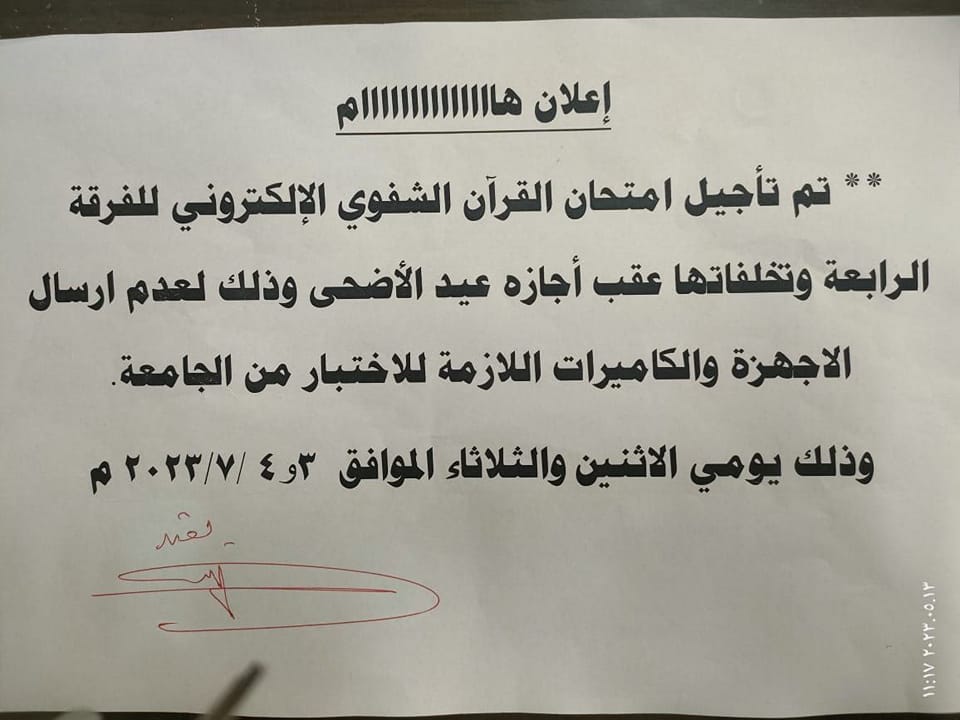 إعلان هاااااااااااااام
** تم تأجيل امتحان القرآن الشفوي الإلكتروني للفرقة
الرابعة وتخلفاتها عقب أجازه عيد الأضحى وذلك لعدم ارسال
الاجهزة والكاميرات اللازمة للاختبار من الجامعة.
وذلك يومي الاثنين والثلاثاء الموافق ٣و٤ /٢٠٢٣/٧ م
يعتمد
٢٠٢٣.٠٥.١٣ ١١:١٧